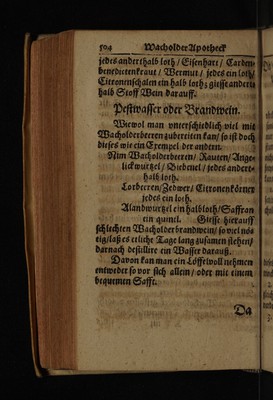 504 Wacholder Apotheck
jedes anderthalb loth / Eisenhart / Carden-
benedictenkraut / Wermut / jedes ein loth /
Citronenschalen ein halb loth; giesse anderts
halb Stoff Wein darauff.
Pestwasser oder Brandwein.
Wiewol man unterschiedlich viel mit
Wacholderbeeren zubereiten kan / so ist doch
dieses wie ein Exempel der andern.
Nim Wacholderbeeren / Rauten / Ange-
lickwurtzel / Bibenel / jedes andert-
halb loth.
Lorbeeren / Zedwer / Citronenkörner
jedes ein loth.
Alandwurtzel ein halb loth / Saffran
ein quintl. Giesse hierauff
schlechten Wacholderbrandwein / so viel nö-
tig / laß es etliche Tage lang zusamen stehen /
darnach destillire ein Wasser darauß.
Davon kan man ein Löffelvoll nehmen
entweder so vor sich allein / oder mit einem
bequemen Safft.
Da